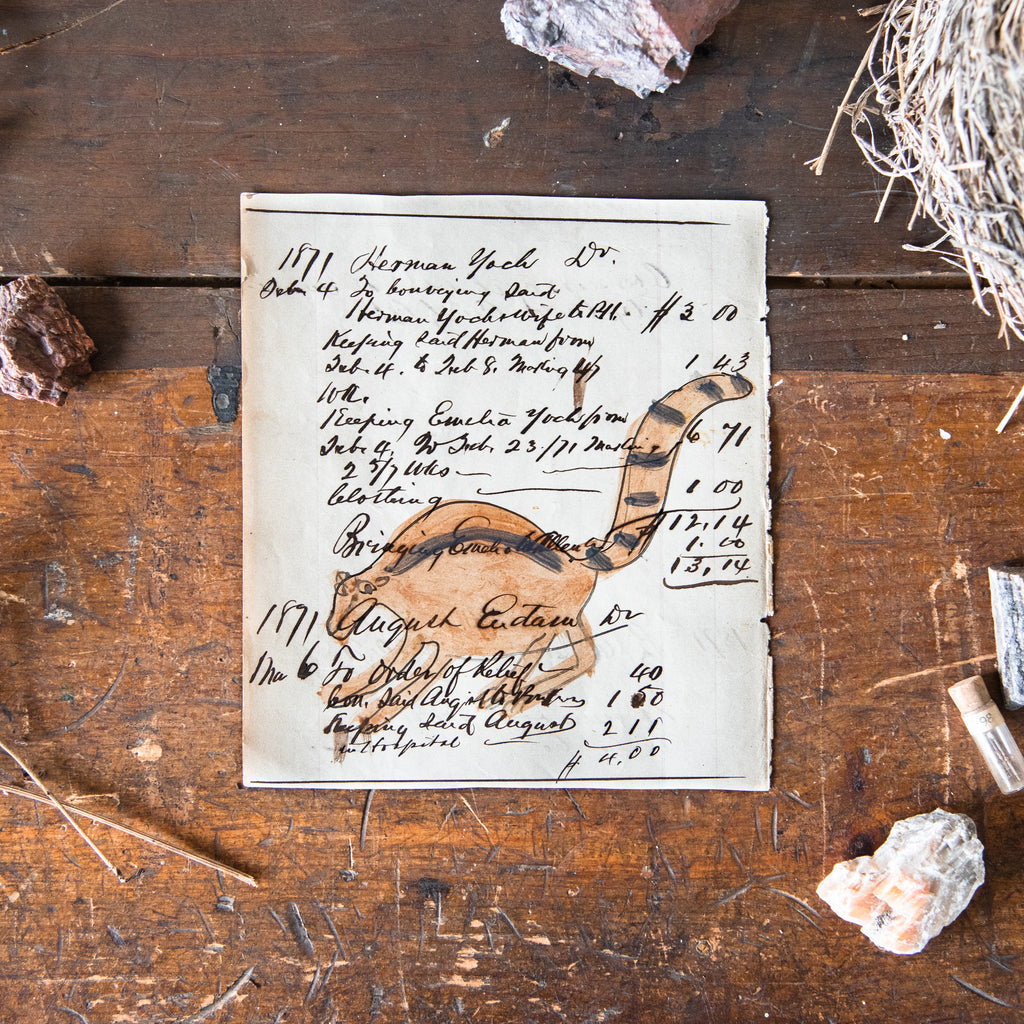 1871 Herman Yoch Dr.
Feb. 4 To Conveying Said
Herman Yoch & wife to P.H. $ 3 00
Keeping Said Herman from
Feb. 4. to Feb 8. Making 4/7 1 43
Wk.
Keeping Emelia Yoch from
Feb. 4. To Feb. 23/71 Making 6 71
2 5/7 Wks
Clothing 1 00
$ 12,14
Bringing Emelia 1.00
13,14
1871 August Dr
6 To Order of Relief 40
Con. Said August to 1 50
Keeping Said August 2 11
in Hospital
$ 4,00